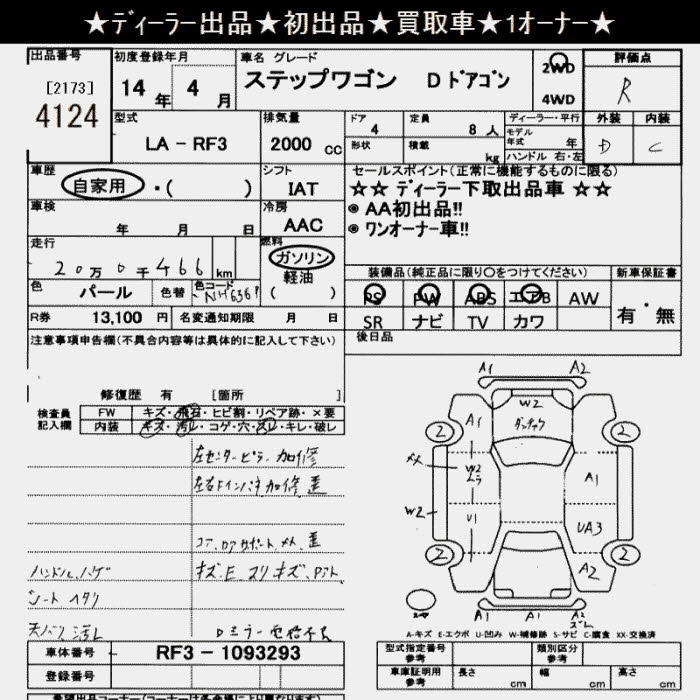 ★ディーラー出品★初出品★買取車★1オーナー★
出品番号 初度登録年月 車名 グレード 評価点
[2173] 14年 4月 ステップワゴン Dドアゴン 2WD R
4124 4WD
型式 排気量 ドア 定員 ディーラー・平行 外装 内装
LA-RF3 2000cc 4 8人 モデル年式 年 D C
形状 積載 kg ハンドル 右・左
車歴 シフト セールスポイント(正常に機能するものに限る)
自家用・( ) IAT ☆☆ ディーラー下取出品車 ☆☆
車検 冷房 ◉AA初出品!!
年 月 日 AAC ◉ワンオーナー車!!
走行 燃料
20万0千466km ガソリン
軽油 装備品(純正品に限り○をつけてください) 新車保証書
色 パール 色替 色コード NH636P ( ) PS PW ABS エアB AW 有・無
R券 13,100円 名変通知期限 月 日 SR ナビ TV カワ
注意事項申告欄(不具合内容等は具体的に記入して下さい) 後日品
修復歴 有 [箇所 ]
検査員記入欄 FW キズ・飛石・ヒビ割・リペア跡・×要
内装 キズ・汚レ・コゲ・穴・スレ・キレ・破レ
左センターピラー加修
左右Fインパネ加修 歪
コア、ロアサポート、メ人、歪
ハンドルハゲ キズ・E スリキズ、Pアト
シートヘタリ
天バリ汚レ Dミラー電格不良
A1 A2
W2
2 A1 2
XX W2 A1
W2 U1 UA3
2 A2 2
A1 A1 A2
スレ
A-キズ E-エクボ U-凹み W-補修跡 S-サビ C-腐食 XX-交換済
車体番号 RF3-1093293 型式指定番号 参考 類別区分 参考
登録番号 車庫証明用 参考 長さ cm 幅 cm 高さ cm
希望出品コーナー(コーナーは各会場により異なります)